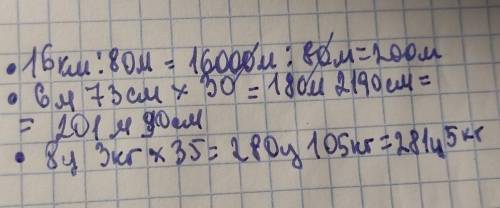 • 16км : 80м = 16000м : 80м = 200м
• 6м 73см × 30 = 180м 2190см =
= 201м 90см
• 8ц 3кг × 35 = 280ц 105кг = 281ц 5кг